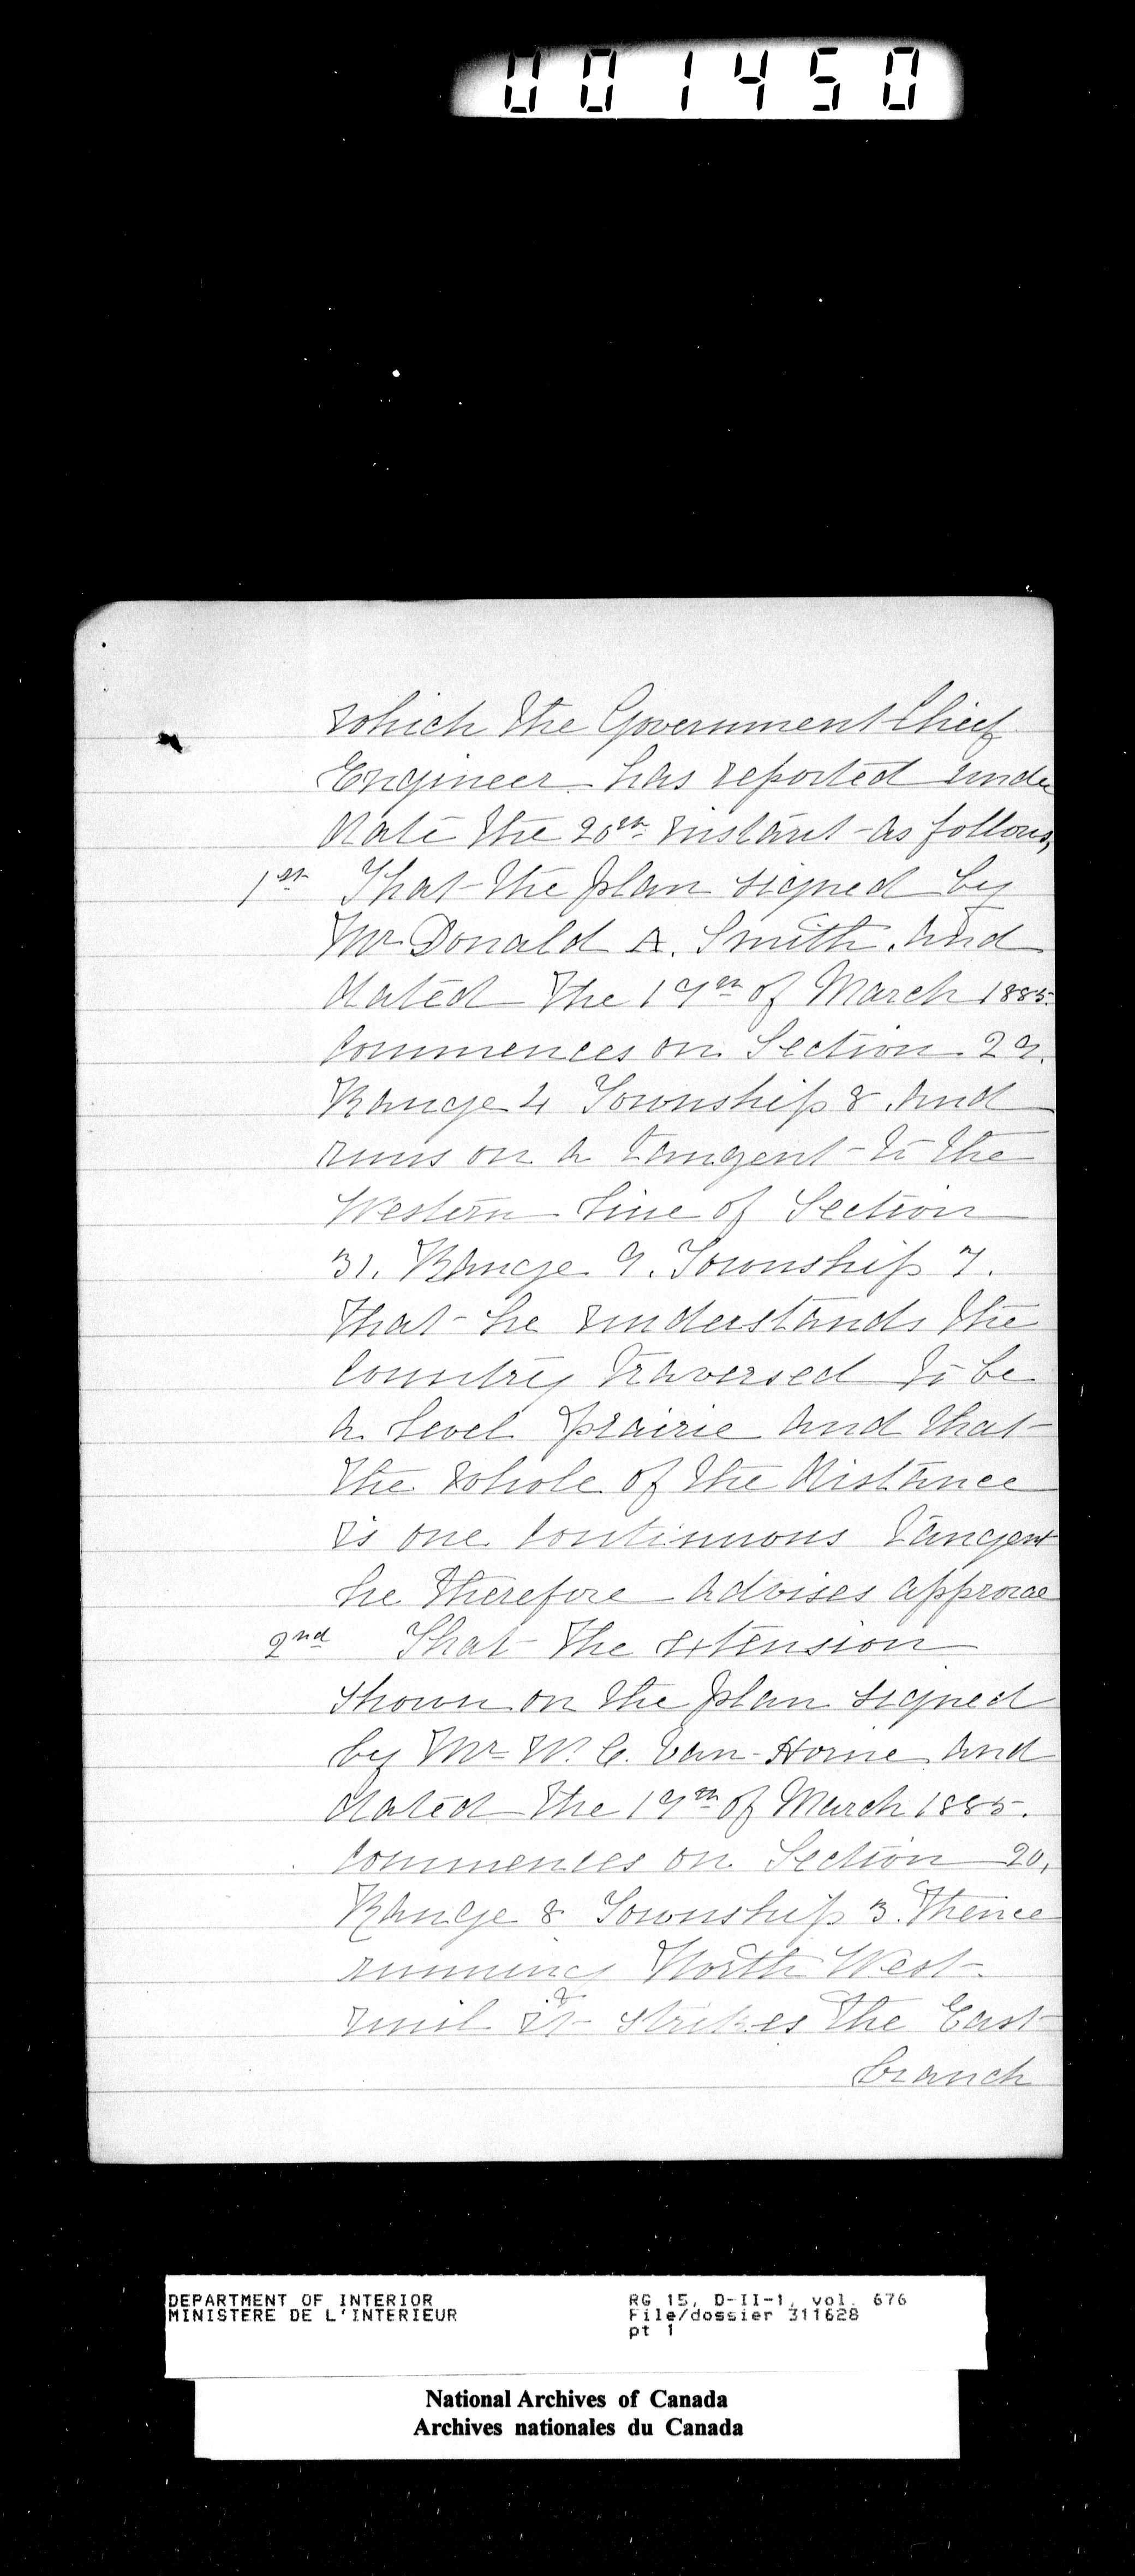 001450
which the Government Chief
Engineer has reported under
date the 20th instant as follows,
1st That the plan signed by
Mr Donald A. Smith, and
dated the 17th of March 1885.
commences on Section
Range 4 Township 8. and
runs on a tangent to the
Western line of Section
31. Range 9. Township 7.
that he understands the
Country traversed to be
a level prairie and that
the whole of the distance
is one continuous tangent
he therefore advises approval
2nd That the extension
shown on the plan signed
by Mr W. C. Van Horne and
dated the 17th of March 1885.
commences on Section 20,
Range 8 Township 3. thence
running North West
until it strikes the East
branch
DEPARTMENT OF INTERIOR
MINISTERE DE L'INTERIEUR
RG 15, D-II-1, vol. 676
File/dossier 311628
pt 1
National Archives of Canada
Archives nationales du Canada